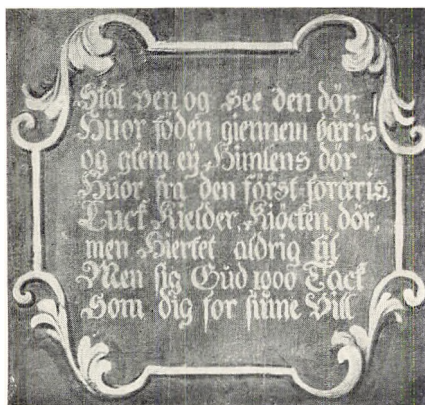 Stat ven og see den dör
Huor föden giennem bæris
og glem eÿ Himlens dör
Huor fra den först foræris,
Luck Kielder, Kiöcken, dör,
men Hiertet aldrig till
Men sig Gud 1000 Tack
Som dig for sine Vill